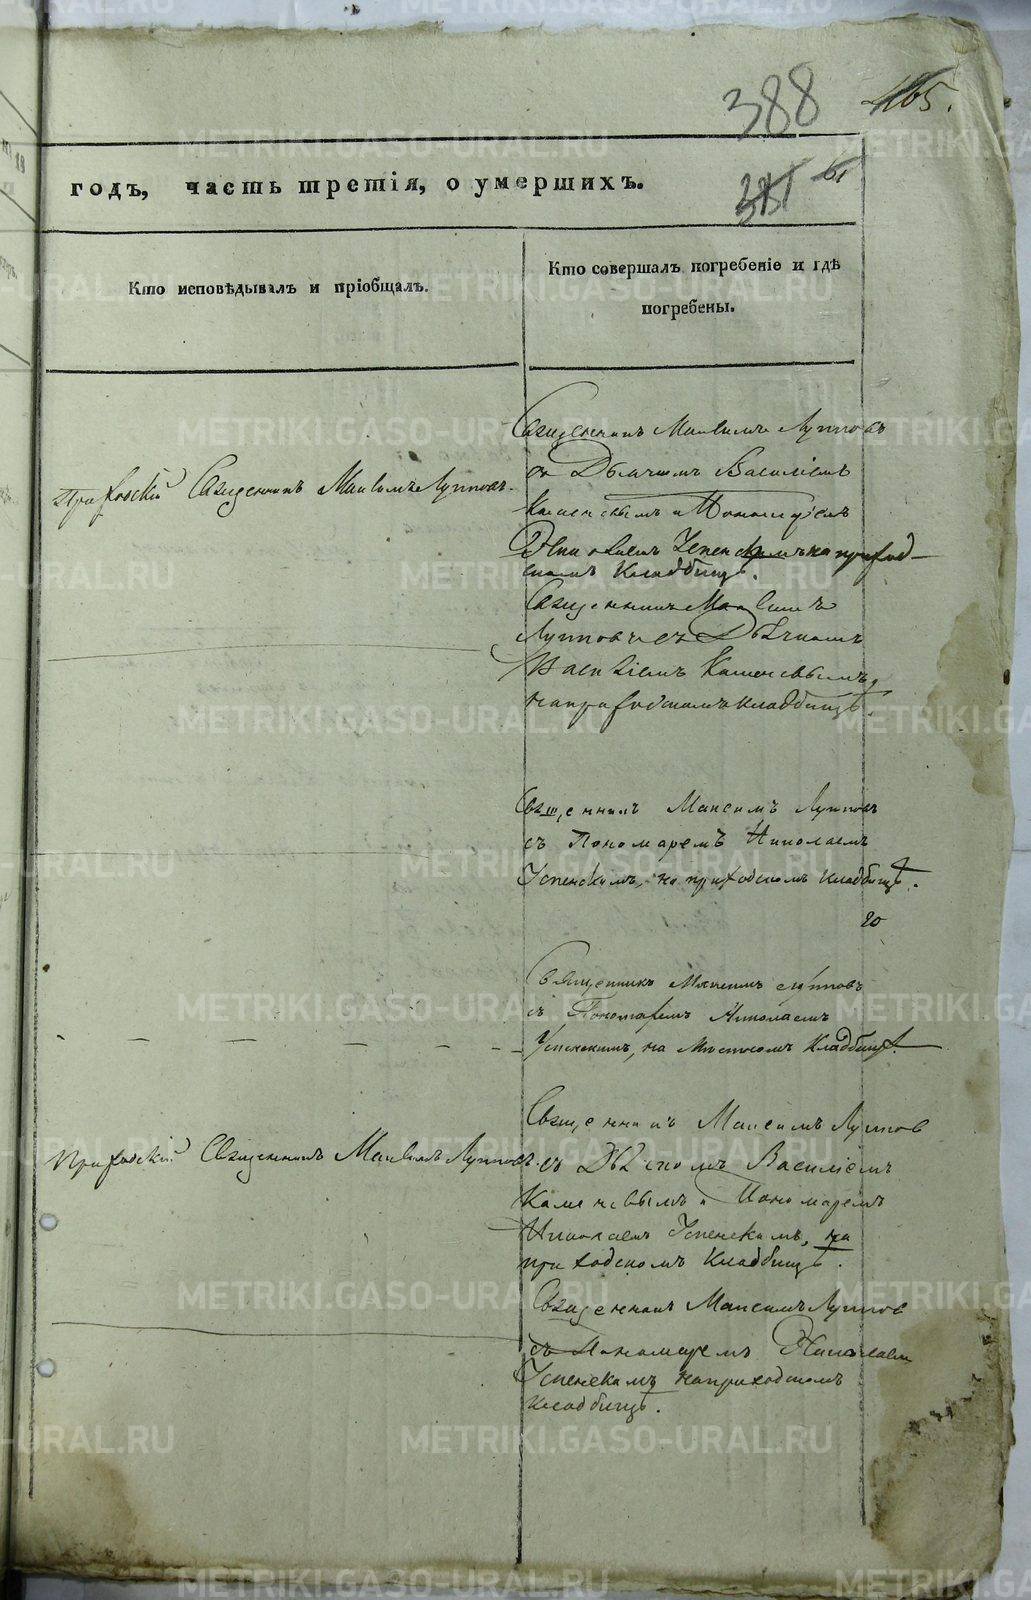 388
465.
годъ, часть третія, о умершихъ.
381 61
Кто исповѣдывалъ и пріобщалъ.
Кто совершалъ погребеніе и гдѣ
погребены.
Священникъ Максимъ Лупповъ
съ Дьячкомъ Василіемъ
Приходскій Священникъ Максимъ Лупповъ.
Каменевымъ и Пономаремъ
Николаемъ Успенскимъ на приход-
скомъ кладбищѣ.
Священникъ Максимъ
Лупповъ съ Дьячкомъ
Василіемъ Каменевымъ,
на приходскомъ кладбищѣ.
Священникъ Максимъ Лупповъ
съ Пономаремъ Николаемъ
Успенскимъ, на приходскомъ кладбищѣ.
20
Священникъ Максимъ Лупповъ
съ Пономаремъ Николаемъ
Успенскимъ, на мѣстномъ кладбищѣ.
Священникъ Максимъ Луппов
Приходскій Священникъ Максимъ Лупповъ.
съ Дьячкомъ Василіемъ
Каменевымъ и Пономаремъ
Николаемъ Успенскимъ, на
приходскомъ кладбищѣ.
Священникъ Максимъ Луппов
съ Пономаремъ Николаем
Успенскимъ на приходскомъ
кладбищѣ.
METRIKI.GASO-URAL.RU